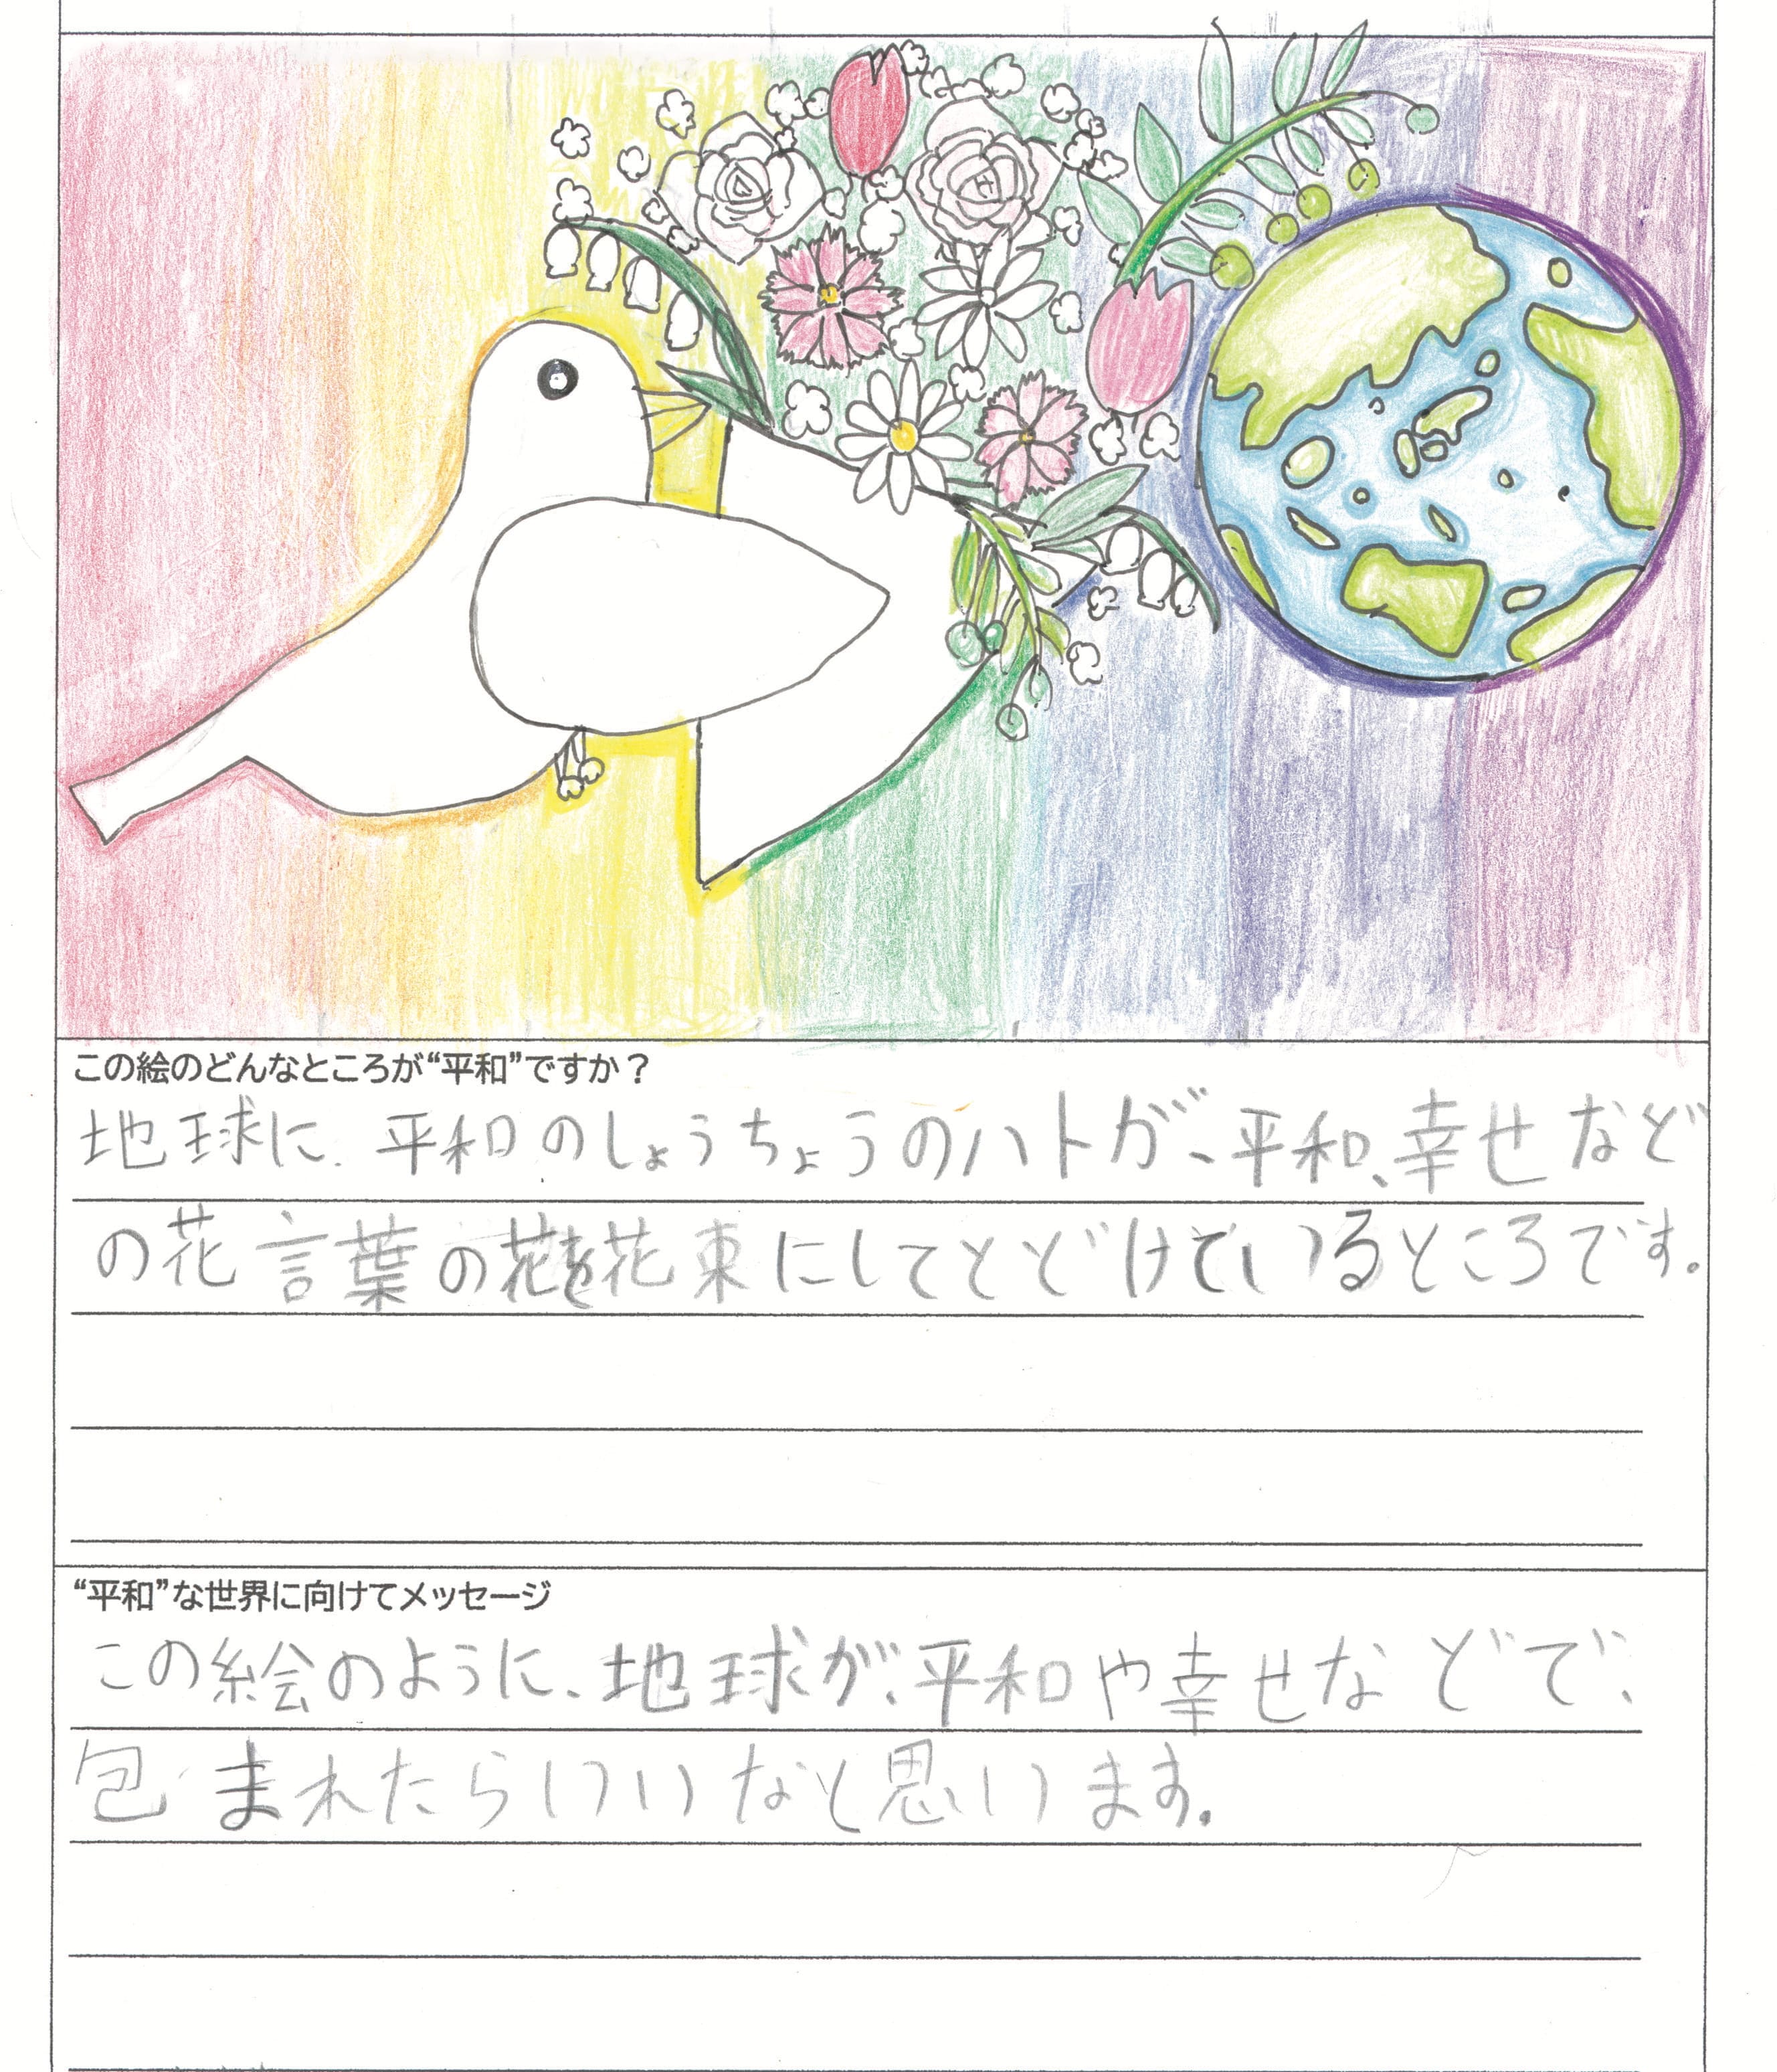 この絵のどんなところが“平和”ですか？
地球に、平和のしょうちょうのハトが、平和、幸せなど
の花言葉の花を花束にしてとどけているところです。
“平和”な世界に向けてメッセージ
この絵のように、地球が、平和や幸せなどで、
包まれたらいいなと思います。